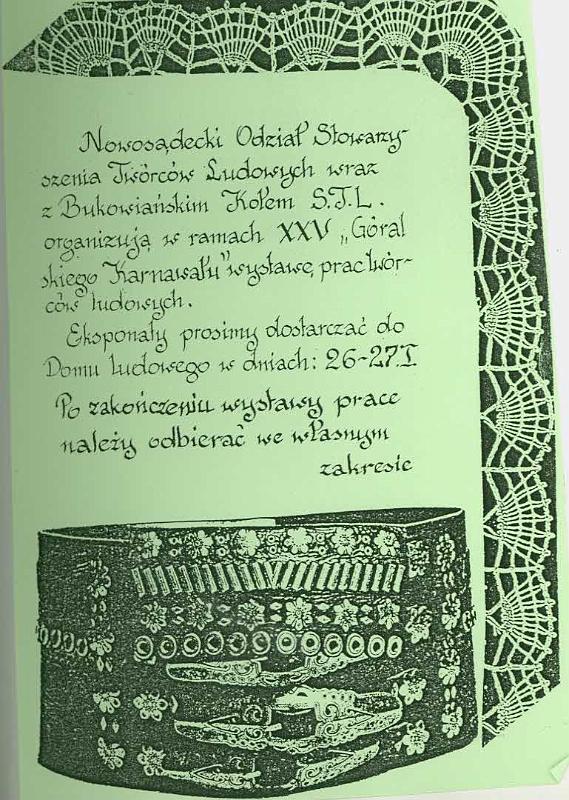 Nowosądecki Odział Stowarzy-
szenia Twórców Ludowych wraz
z Bukowiańskim Kołem S.T.L.
organizują w ramach XXV „Góral
skiego Karnawału" wystawę prac twór-
ców ludowych.
Eksponaty prosimy dostarczać do
Domu Ludowego w dniach: 26-27.I
Po zakończeniu wystawy prace
należy odbierać we własnym
zakresie